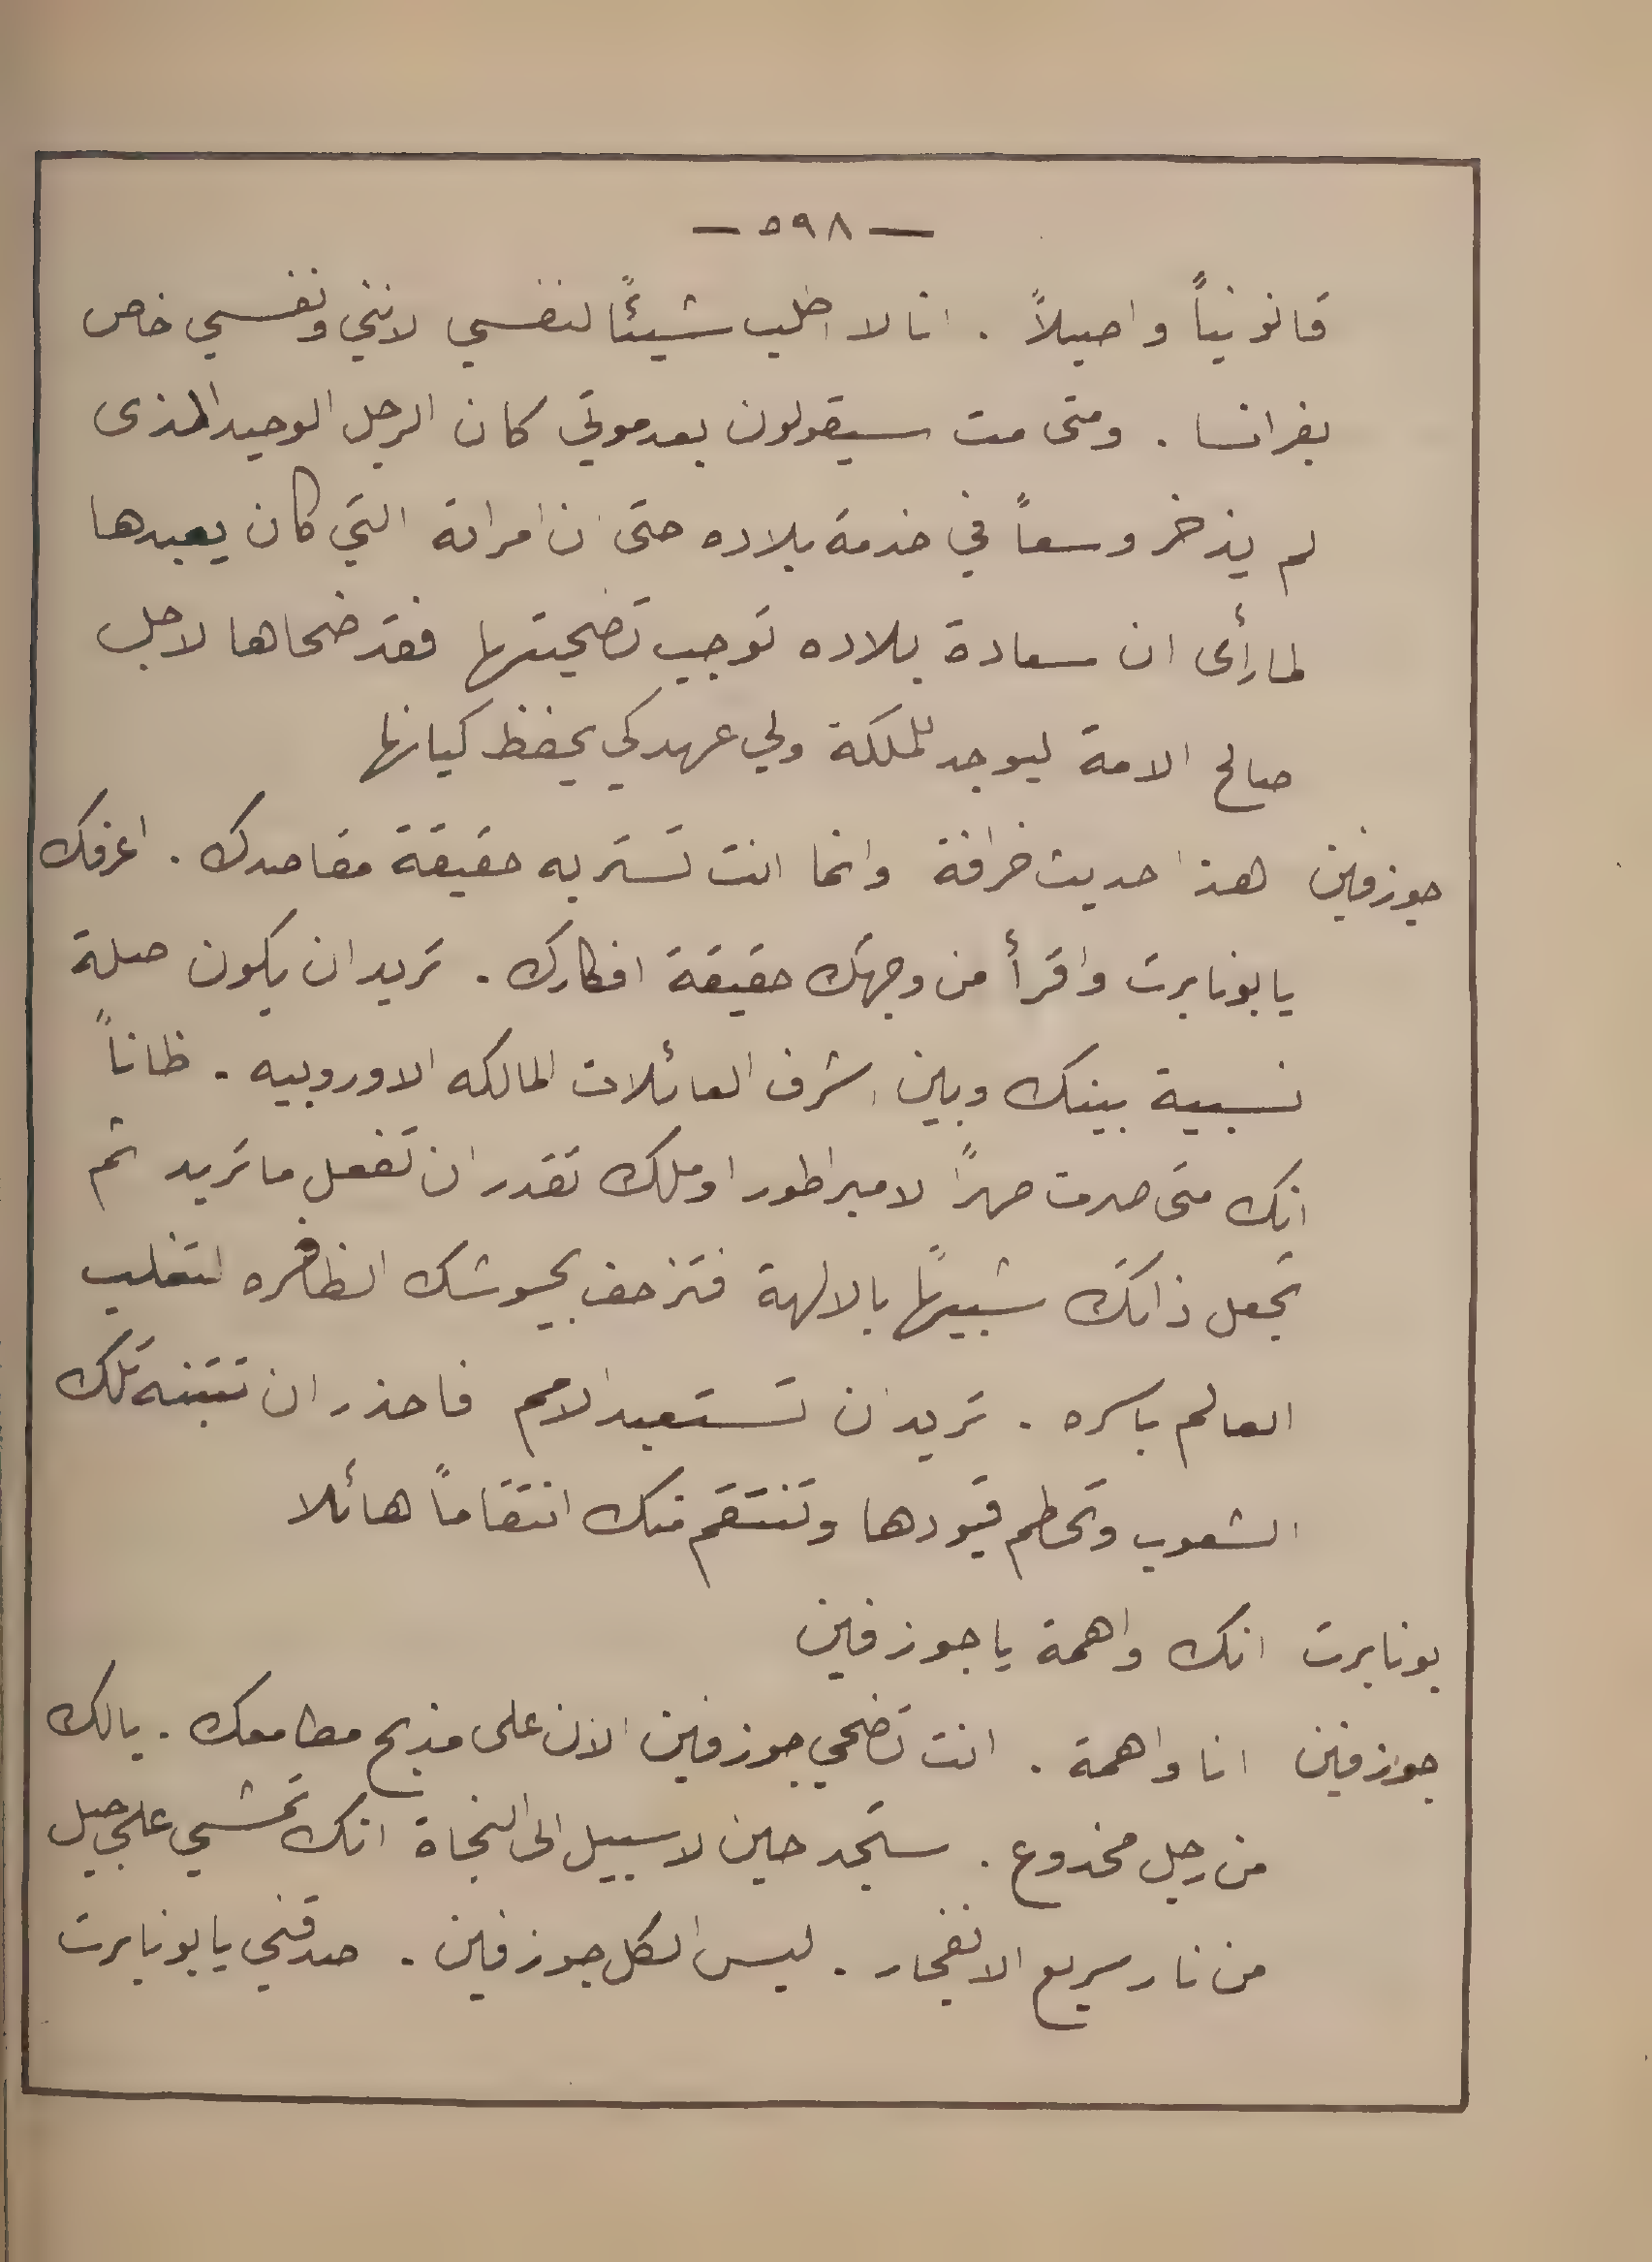 — ٥٩٨ —
قانونياً واصيلاً . انا لا اطلب شيئًا لنفسي لانني ونفسي خاص
بفرانسا . ومتى مت سيقولون بعد موتي كان الرجل الوحيد الذى
لم يذخر وسعاً في خدمة بلاده حتى ان امراته التي كان يعبدها
لما رأى ان سعادة بلاده توجب تضحيتها فقد ضحاها لاجل
صالح الامة ليوجد للملكة ولي عهد كي يحفظ كيانها
جوزفين هذا حديث خرافة وانما انت تستر به حقيقة مقاصدك . اعرفك
يا بونابرت واقرأ من وجهك حقيقة افكارك . تريد ان يكون صلة
نسبية بينك وبين اشرف العائلات المالكه الاوروبيه . ظاناً
انك متى صرت صهرًا لامبراطور او ملك تقدر ان تفعل ما تريد ثم
تجعل ذاتك شبيهًا بالالهة فتزحف بجيوشك الظافره لتغلب
العالم باسره . تريد ان تستعبد الامم فاحذر ان تتنبه تلك
الشعوب وتحطم قيودها وتنتقم منك انتقاماً هائلا
بونابرت انك واهمة يا جوزفين
جوزفين انا واهمة . انت تضحي جوزفين الان على مذبح مطامعك . يالك
من رجل مخدوع . ستجد حين لا سبيل الى النجاة انك تمشي على جبل
من نار سريع الانفجار . ليس الكل جوزفين . صدقني يا بونابرت